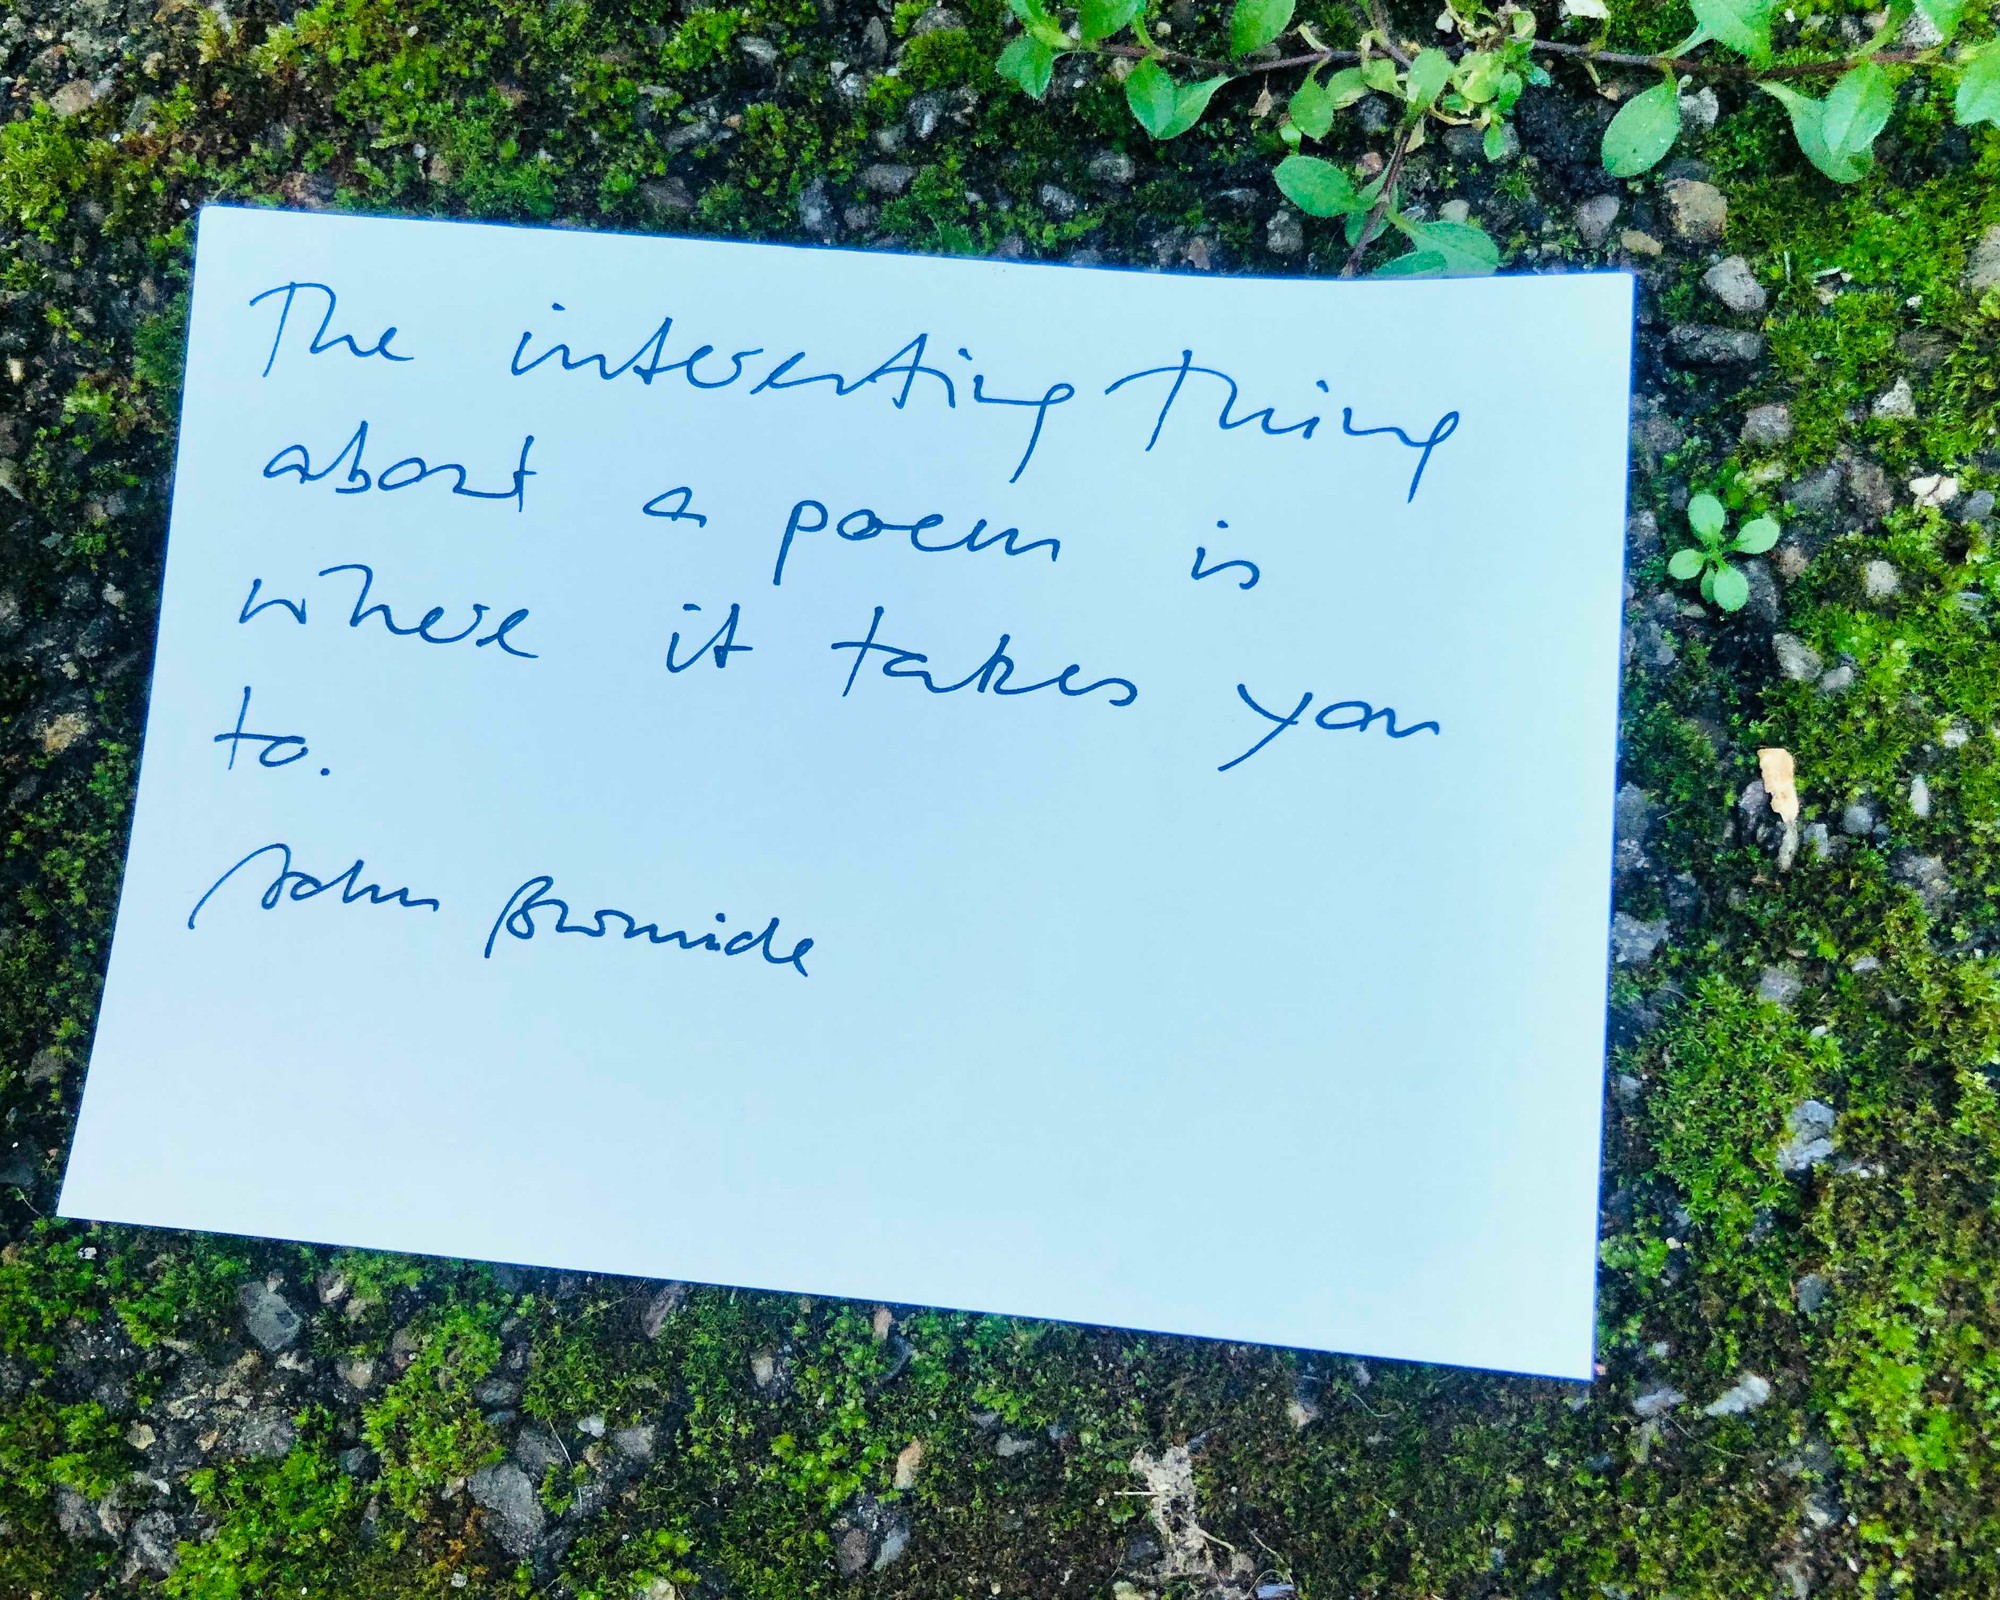 The interesting thing
about a poem is
where it takes you
to.
John Bromide